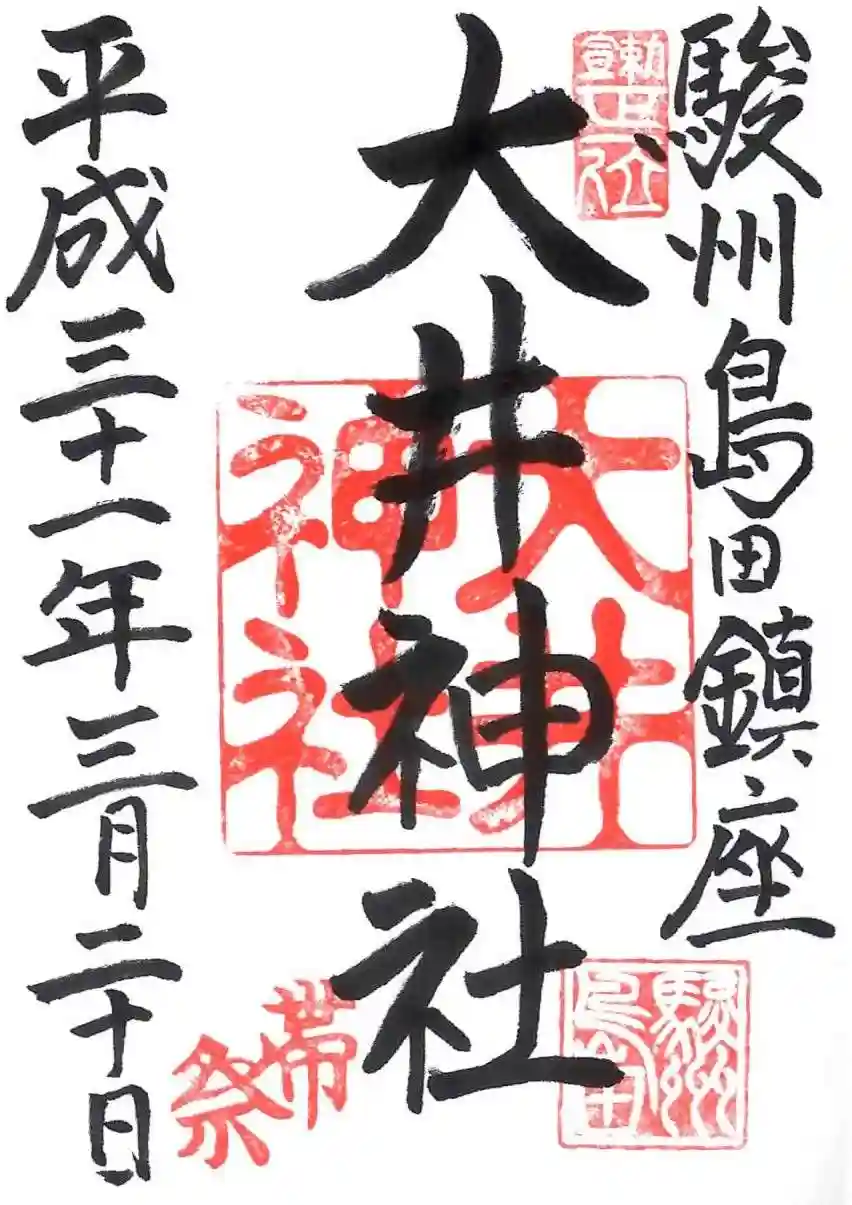 駿州島田鎮座
勅宣正一位
大井神社
大井神社
駿州島田
帯祭
平成三十一年三月二十日